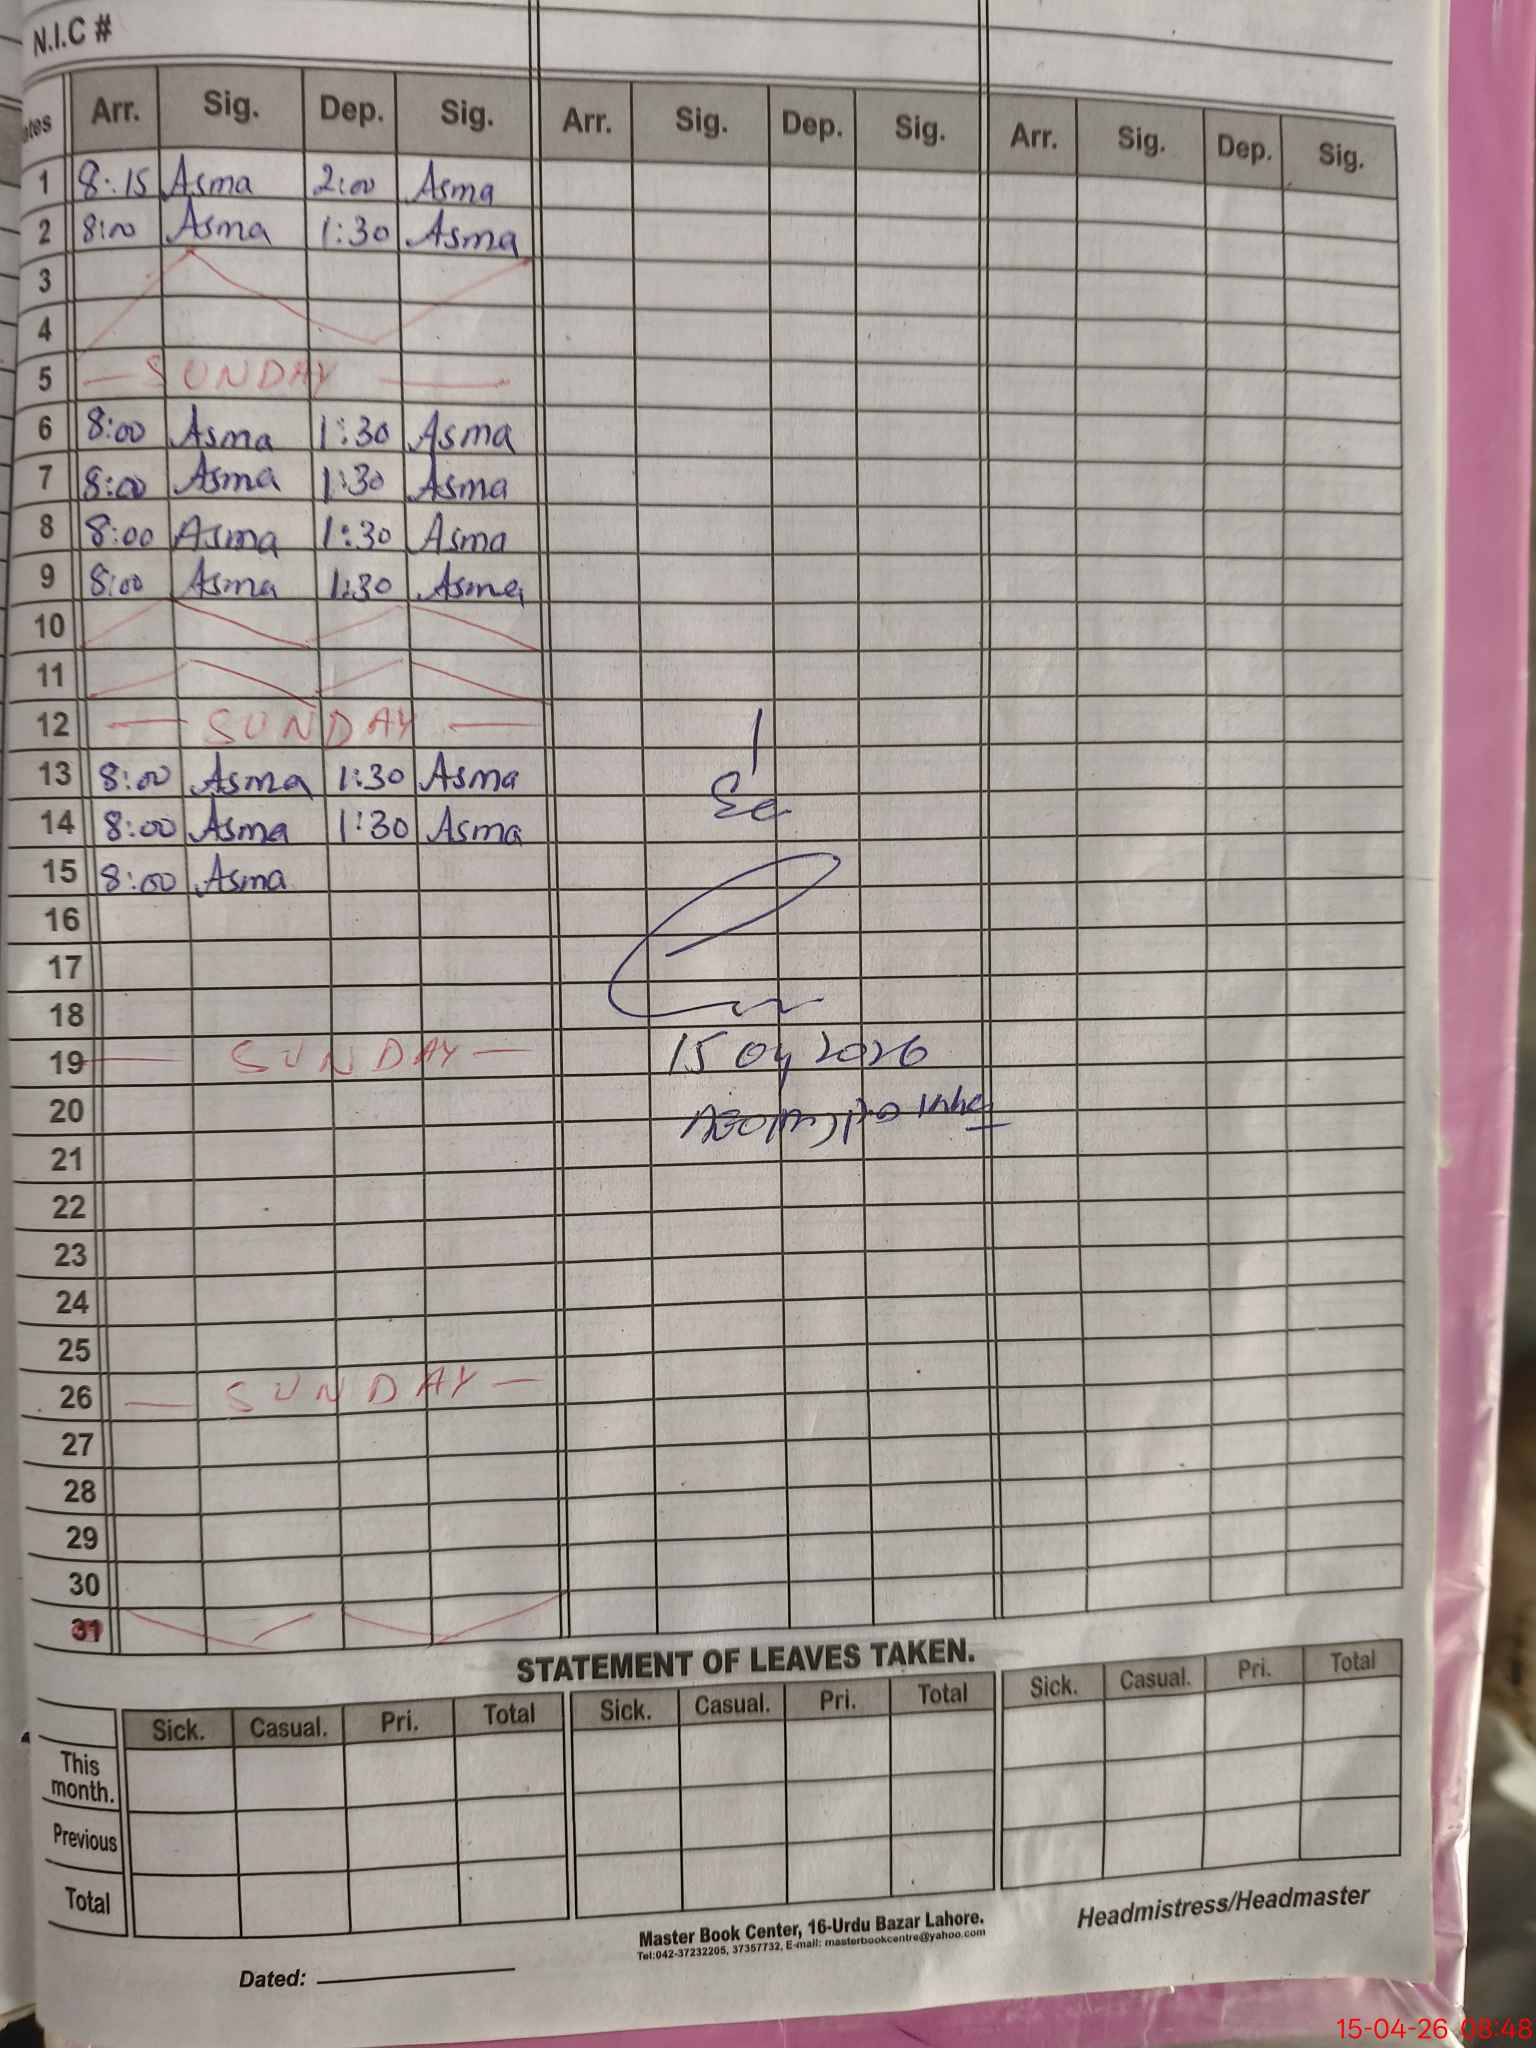 N.I.C #
Arr. Sig. Dep. Sig. Arr. Sig. Dep. Sig. Arr. Sig. Dep. Sig.
1 8:15 Asma 2:00 Asma
2 8:00 Asma 1:30 Asma
3
4
5 — SUNDAY —
6 8:00 Asma 1:30 Asma
7 8:00 Asma 1:30 Asma
8 8:00 Asma 1:30 Asma
9 8:00 Asma 1:30 Asma
10
11
12 — SUNDAY —
13 8:00 Asma 1:30 Asma
14 8:00 Asma 1:30 Asma
15 8:00 Asma
16
17
18
19 — SUNDAY — 15 04 2026
20
21
22
23
24
25
26 — SUNDAY —
27
28
29
30
31
STATEMENT OF LEAVES TAKEN.
Sick. Casual. Pri. Total Sick. Casual. Pri. Total Sick. Casual. Pri. Total
This month.
Previous
Total
Master Book Center, 16-Urdu Bazar Lahore.
Tel:042-37232205, 37357732, E-mail: masterbookcentre@yahoo.com
Headmistress/Headmaster
Dated:
15-04-26 08:48